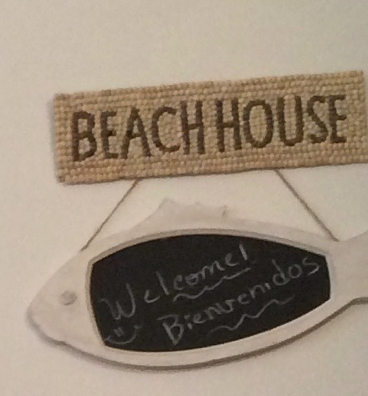 BEACH HOUSE
Welcome!
Bienvenidos